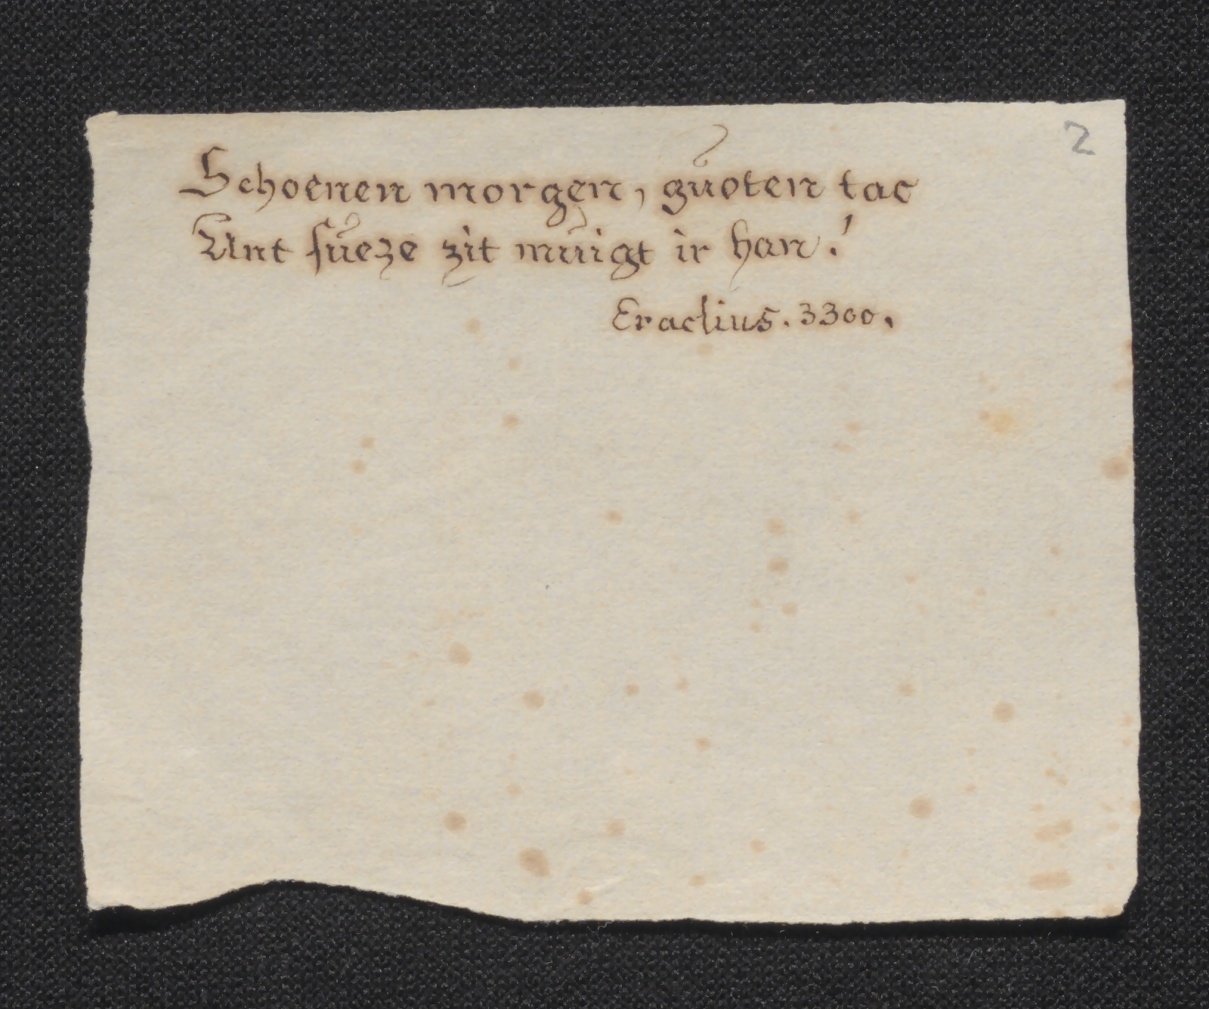 2
Schoenen morgen, guͦoten tac
Unt ſuͤeze zît muͤigt ir han!
Eraclius. 3300.